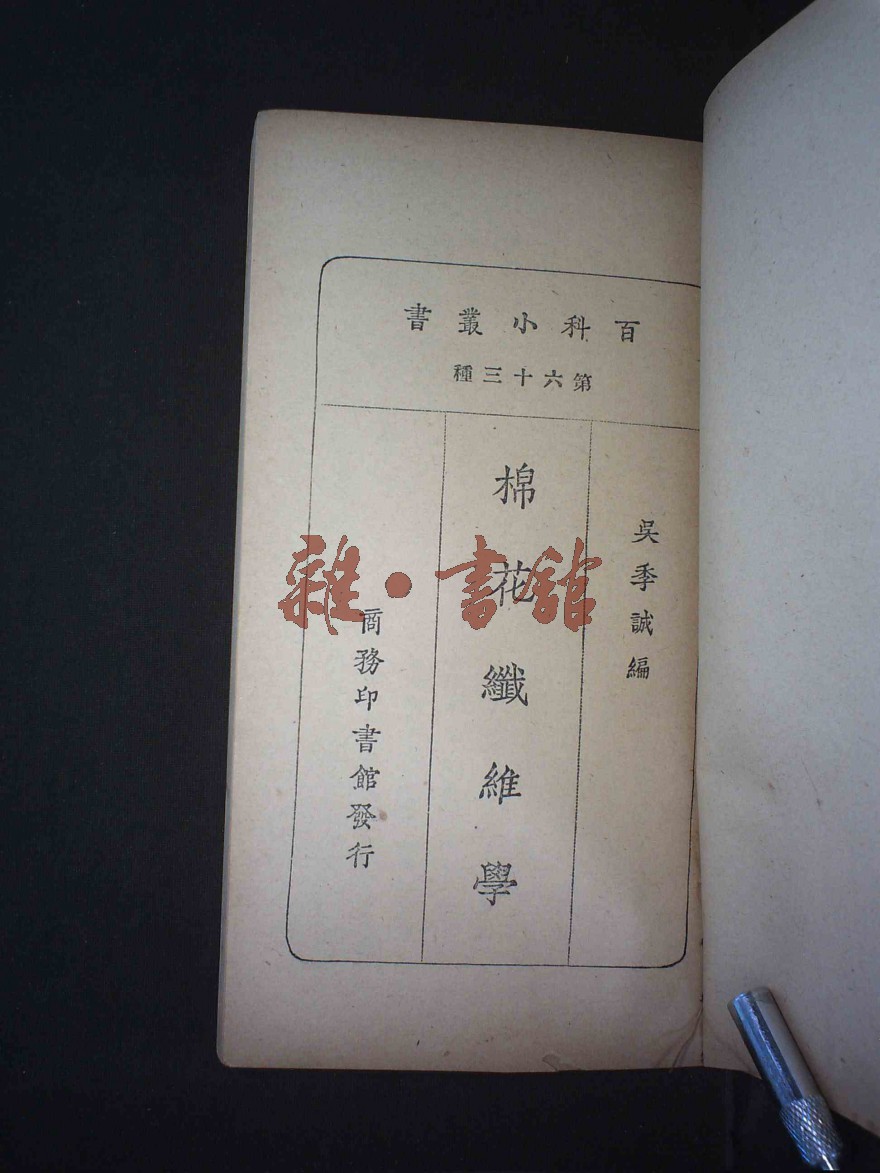 百科小叢書
第六十三種
吳季誠編
棉花纖維學
商務印書館發行
雜·書館